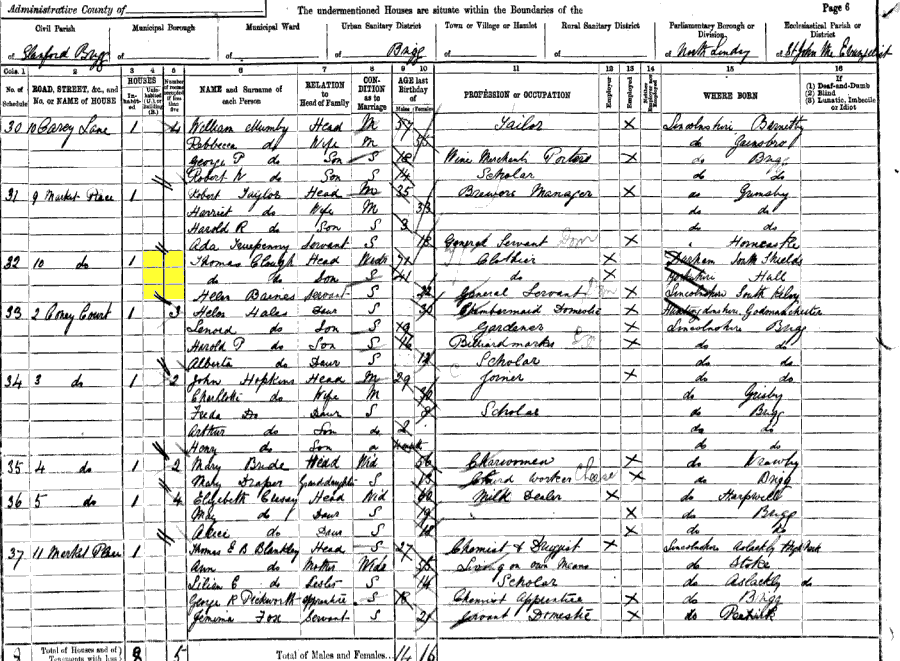 Administrative County of
The undermentioned Houses are situate within the Boundaries of the
Page 6
Civil Parish
Municipal Borough
Municipal Ward
Urban Sanitary District
Town or Village or Hamlet
Rural Sanitary District
Parliamentary Borough or Division
Ecclesiastical Parish or District
of Glanford Brigg of of of Brigg of of of North Lindsey of St John the Evangelist
Cols. 1 2 3 4 5 6 7 8 9 10 11 12 13 14 15 16
No. of Schedule
ROAD, STREET, &c., and No. or NAME of HOUSE
HOUSES
NAME and Surname of each Person
RELATION to Head of Family
CONDITION as to Marriage
AGE last Birthday of
Males Females
PROFESSION or OCCUPATION
Employer
Employed
WHERE BORN
If
(1) Deaf-and-Dumb
(2) Blind
(3) Lunatic, Imbecile or Idiot
30 10 Carey Lane 1 4 William Mumby Head M 57 Tailor X Lincolnshire Barnetby
Rebbecca do Wife M do
George P do Son S 18 Wine Merchants Porter X do Brigg
Robert W do Son S 14 Scholar do do
31 9 Market Place 1 Robert Taylor Head M 35 Brewers Manager X do Grimsby
Harriet do Wife M 33 do do
Harold R do Son S 3 do do
Ada Truepenny Servant S 18 General Servant X Horncastle
32 10 do 1 Thomas Clough Head Wid 71 Clothier X Durham South Shields
do do Son S 41 do X Yorkshire Hull
Helen Barnes Servant S General Servant X Lincolnshire South Kelsey
33 2 Coney Court 1 3 Helen Hales Daur S Chambermaid Domestic X Huntingdonshire Godmanchester
Lenord do Son S 19 Gardener X Lincolnshire Brigg
Harold P do Son S 16 Billiard marker X do do
Alberta do Daur S 12 Scholar do do
34 3 do 1 2 John Hopkins Head M 29 Joiner X do do
Charlotte do Wife M 30 do
Freda Do Daur S 8 Scholar do Brigg
Arthur do Son do 2 do do
Henry do Son do do
35 4 do 1 2 Mary Bride Head Wid 56 Charwoman X do Wrawby
Mary Draper Granddaughter S 13 X do Brigg
36 5 do 1 4 Elizabeth Head Wid Milk Dealer X do Harpswell
May do Daur S 19 X do Brigg
Alice do Daur S 18 X do do
37 11 Market Place 1 Thomas E B Blankley Head S 27 Chemist & Druggist X Lincolnshire Aslackby
Ann do Mother Wid Living on own Means do Stoke
Lilian E do Sister S 14 Scholar do Aslackby do
George R Peckworth Apprentice S 18 Chemist Apprentice X do Brigg
Jemima Fox Servant S 21 Servant Domestic X do
8 Total of Houses and of Tenements with less 8 5 Total of Males and Females 14 16